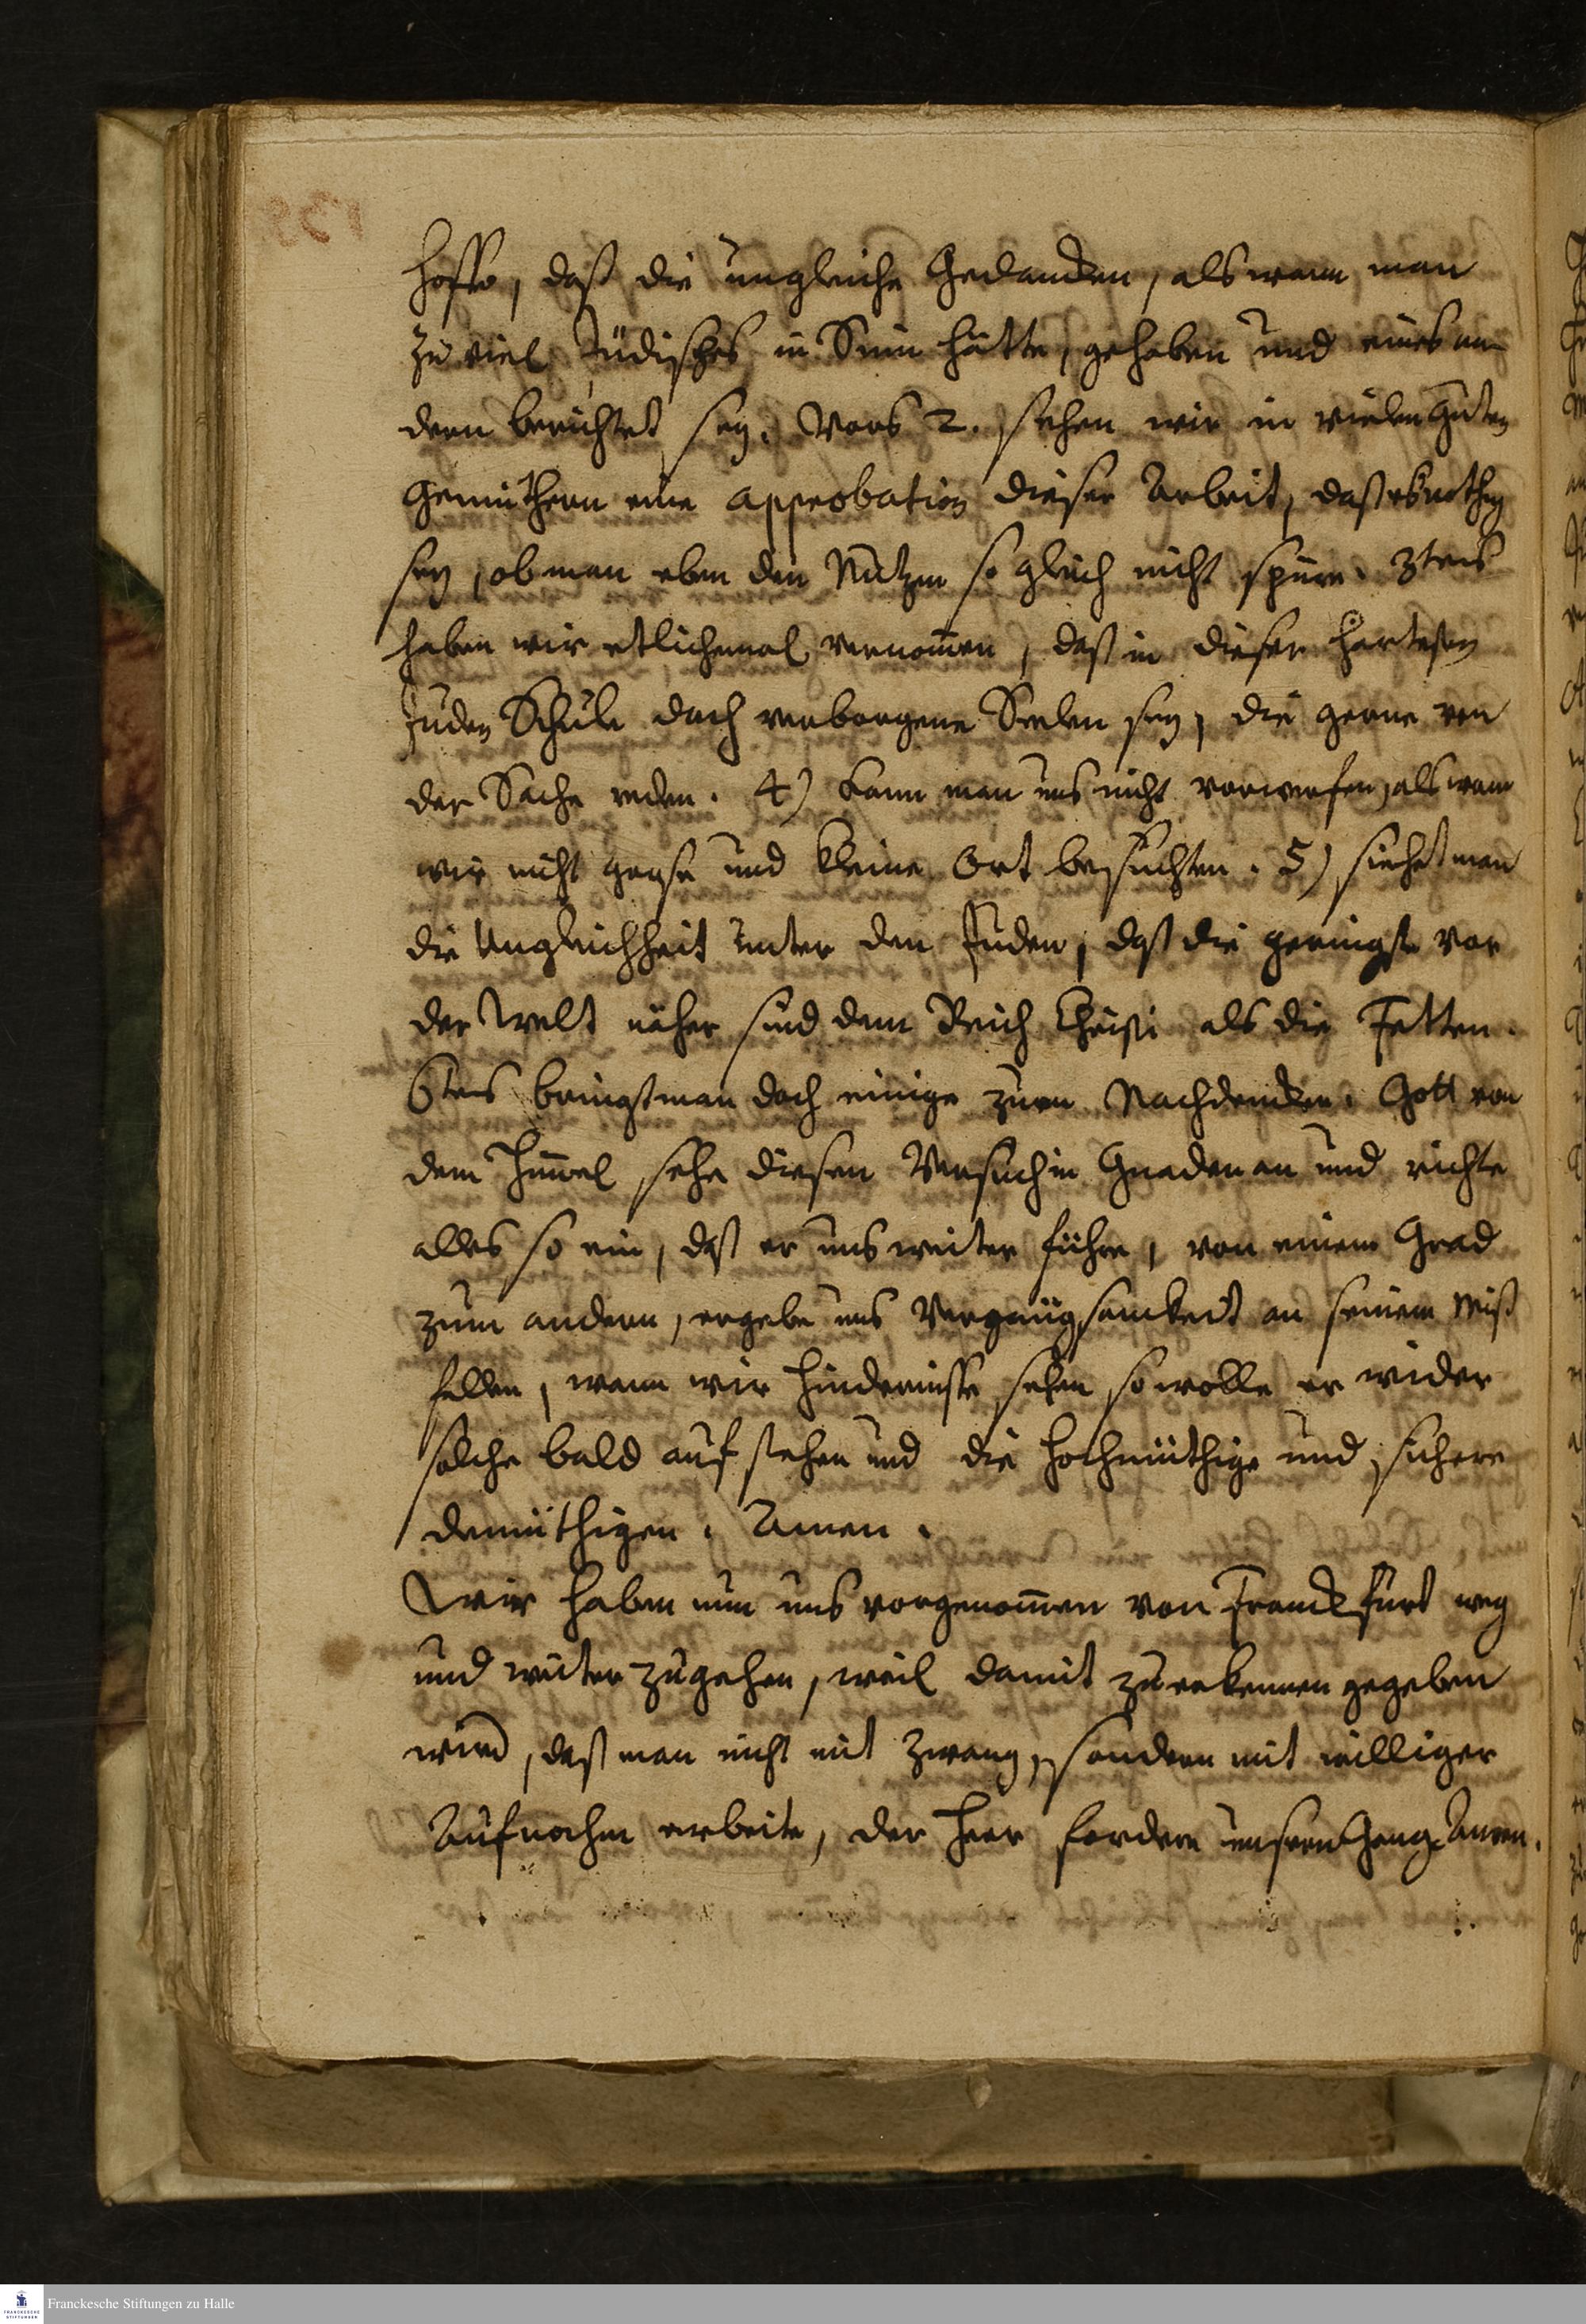 hoffe, daß die ungleiche Gedancken, als wann man
zu viel Jüdisches in Sinn hätte, gehoben und eines an-
dern berichtet sey. Vors 2. sehen wir in vielen guten
Gemüthern eine approbation dieser Arbeit, daß es nöthig
sey, ob man eben den Nutzen so gleich nicht spüre. 3tens
haben wir etlichemal vernom̄en, daß in dieser hartesten
Juden Schule doch verborgene Seelen sey, die gerne von
der Sache reden. 4) kann man uns nicht vorwerfen, als wann
wir nicht grose und kleine Ort besuchten. 5) siehet man
die Ungleichheit unter den Juden, daß die geringste vor
der Welt näher sind dem Reich Christi als die Fetten.
6tens bringt man doch einige zum Nachdencken. Gott von
dem Him̄el sehe diesen Versuch in Gnaden an und richte
alles so ein, daß er uns weiter führe, von einem Grad
zum andern, er gebe uns Vergnügsamkeit an seinem Wohl
fallen, wann wir Hindernisse sehen so wolle er wider
solche bald aufstehen und die hochmüthige und sichere
demüthigen. Amen.
Wir haben nun uns vorgenom̄en von Franckfurt weg
und weiter zu gehen, weil damit zu erkennen gegeben
wird, daß man nicht mit Zwang, sondern mit williger
Aufnahm arbeite, der Herr fordere unsern Gang. Amen.
Franckesche Stiftungen zu Halle